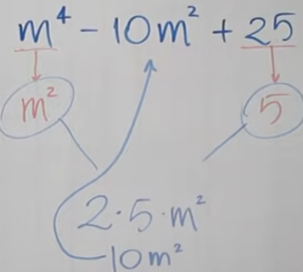 m⁴ - 10m² + 25
m² 5
2·5·m²
10m²